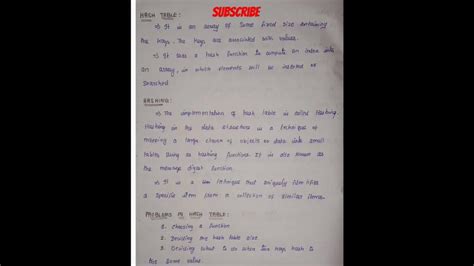 SUBSCRIBE
HASH TABLE :
It is an array of some fixed size containing
the keys. The keys are associated with values.
It uses a hash function to compute an index into
an array, in which elements will be inserted or
Searched.
HASHING :
The implementation of hash table is called Hashing.
Hashing in the data structure is a technique of
mapping a large chunk of objects or data into small
tables using a hashing functions. It is also known as
the message digest function.
It is a technique that uniquely identifies
a specific item from a collection of similar items.
PROBLEMS IN HASH TABLE :
1. Choosing a function
2. Deciding my hash table size
3. Deciding what to do when two keys hash to
the same value.